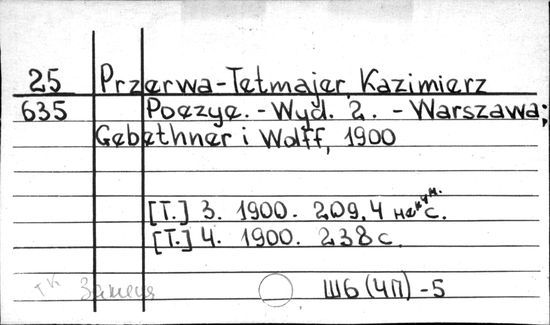 25 Przerwa-Tetmajer, Kazimierz
635 Poezye. - Wyd. 2. - Warszawa;
Gebethner i Wolff, 1900
[T.] 3. 1900. 209, 4 ненум. с.
[T.] 4. 1900. 238 с.
ТК
Ш6(4П)-5